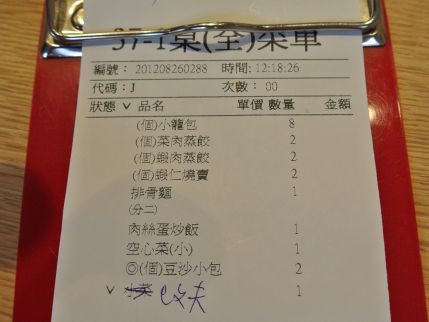 37-1桌(全)菜單
編號：201208260288 時間：12:18:26
代碼：J 次數：00
狀態 ˅ 品名 單價 數量 金額
(個)小籠包 8
(個)菜肉蒸餃 2
(個)蝦肉蒸餃 2
(個)蝦仁燒賣 2
排骨麵 1
(分二)
肉絲蛋炒飯 1
空心菜(小) 1
◎(個)豆沙小包 2
˅ 小菜 1